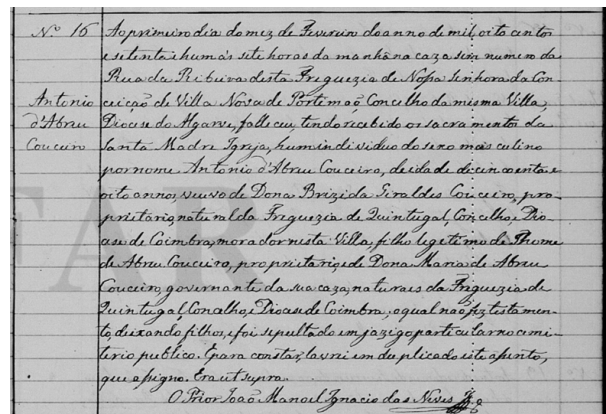 Nº 16
Antonio
d'Abreu
Couceiro
Ao primeiro dia do mez de Fevereiro do anno de mil oito centos
e setenta e hum ás sete horas da manhã na caza sem numero da
Rua da Ribeira desta Freguezia de Nossa Senhora da Con-
ceição de Villa Nova de Portimaõ, Concelho da mesma Villa,
Diocese do Algarve, falleceu, tendo recebido os sacramentos da
Santa Madre Igreja, hum individuo do sexo masculino
por nome Antonio d'Abreu Couceiro, de idade de cincoenta e
oito annos, viuvo de Dona Brizida Geraldes Couceiro, pro-
prietario, natural da Freguezia de Quintugal, Concelho, e Dio-
cese de Coimbra, morador nesta Villa, filho legitimo de Thome
de Abreu Couceiro, proprietario, e de Dona Maria de Abreu
Couceiro, governante da sua caza, naturaes da Freguezia de
Quintugal, Concelho, e Diocese de Coimbra; o qual naõ fez testamen-
to, deixando filhos, e foi sepultado em jazigo particular no cemi-
terio publico. E para constar, lavrei em duplicado este assento,
que assigno. Era ut supra.
O Prior João Manoel Ignacio das Neves
FAR